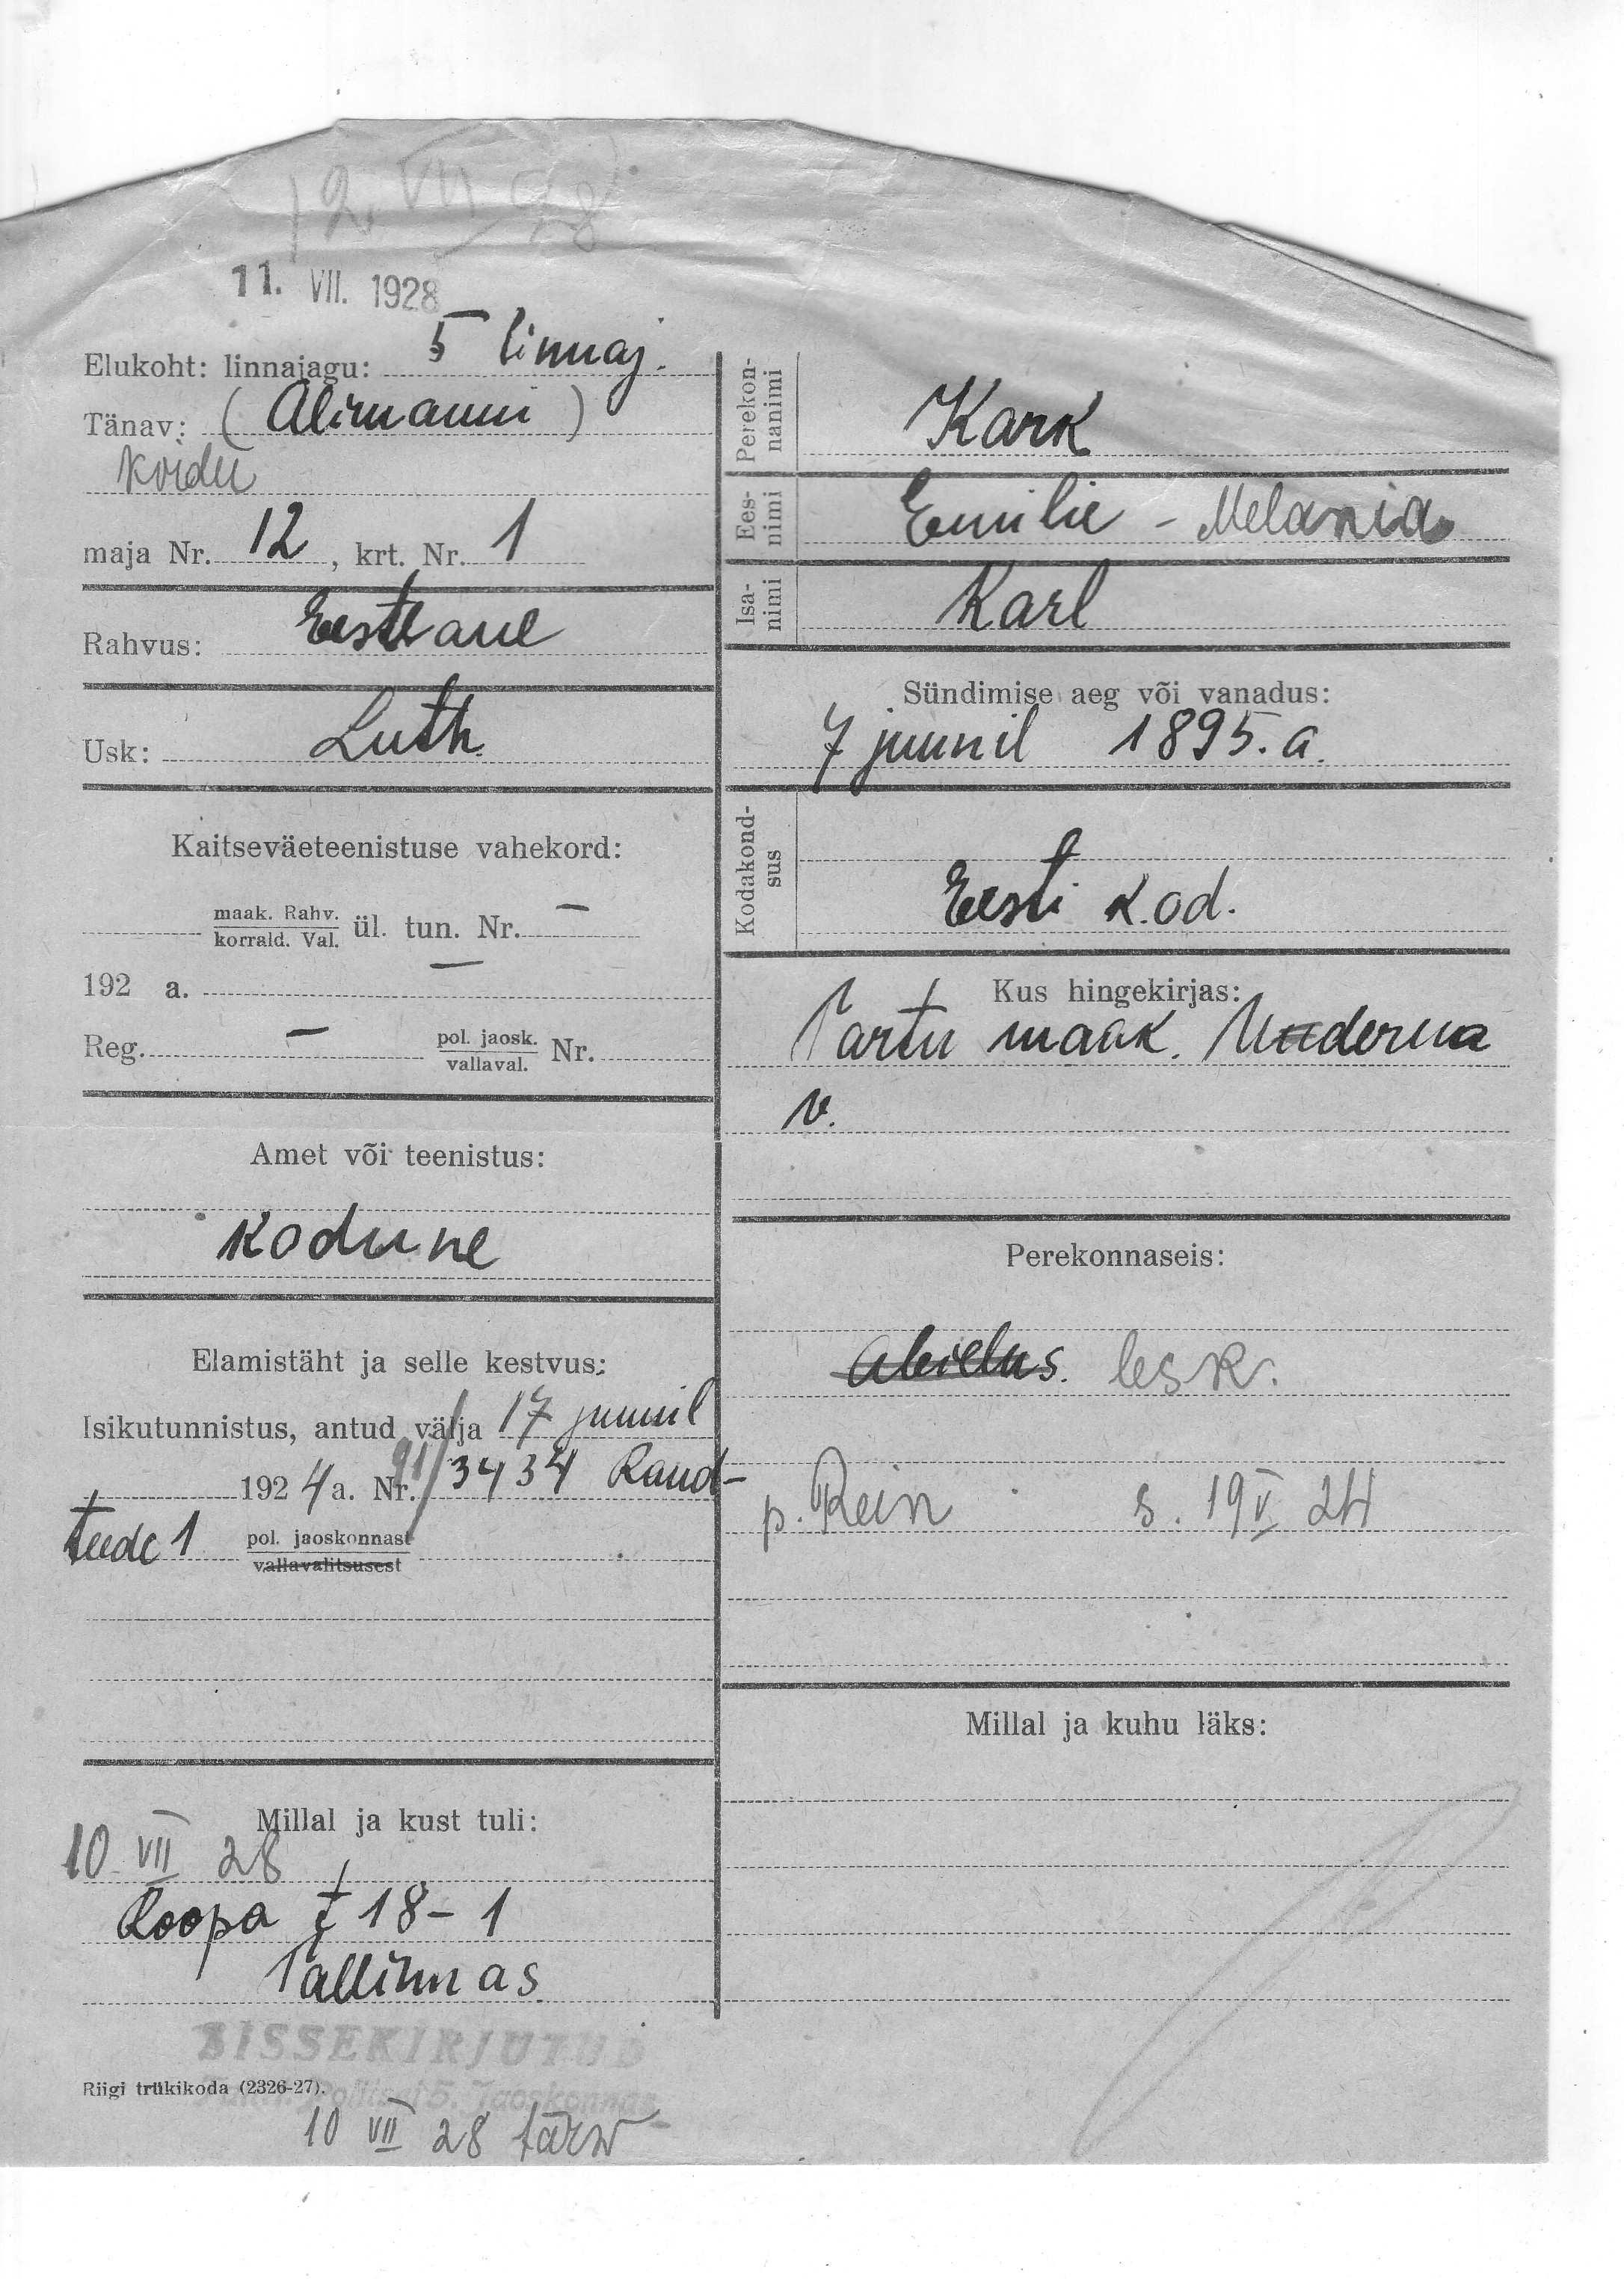 12. VII 28
11. VII. 1928
Elukoht: linnajagu: 5 linnaj.
Tänav: (Alimanni)
Koidu
maja Nr. 12, krt. Nr. 1
Rahvus: Eestlane
Usk: Luth.
Kaitseväeteenistuse vahekord:
maak. Rahv.
korrald. Val. ül. tun. Nr. –
192 a. –
Reg. – pol. jaosk.
vallaval. Nr.
Amet või teenistus:
Kodune
Elamistäht ja selle kestvus:
Isikutunnistus, antud välja 17 juunil
1924 a. Nr. 91/3434 Raud-
teede 1 pol. jaoskonnast
vallavalitsusest
Millal ja kust tuli:
10 VII 28
Roopa t 18-1
Tallinnas
SISSEKIRJUTUD
Riigi trükikoda (2326-27).
Politsei 5. Jaoskonnas
10 VII 28
Perekon-
nanimi
Kark
Ees-
nimi
Emilie - Melania
Isa-
nimi
Karl
Sündimise aeg või vanadus:
7 juunil 1895. a.
Kodakond-
sus
Eesti k.od.
Kus hingekirjas:
Tartu maak.
v.
Perekonnaseis:
Abielus. lesk.
p. Rein s. 19 V 24
Millal ja kuhu läks: